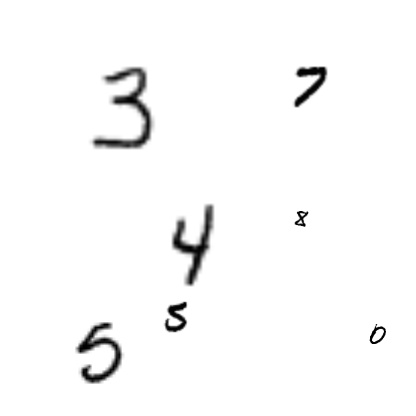 3 7
4 8
5 5 0